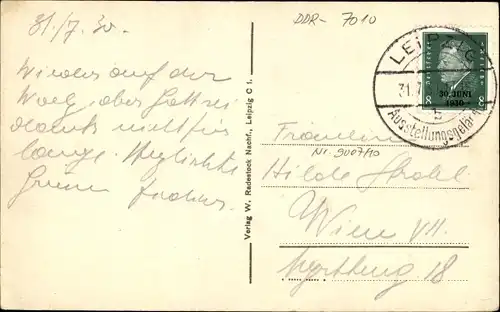 31./7. 30.
Wieder auf der
Weg, aber Gott sei
dank nicht für
lange. Herzlichste
Grüsse
Verlag W. Radestock Nachf., Leipzig C 1.
DDR- 7010
LEIPZIG
31.7.
b
Ausstellungsgelände
8 Deutsches 8
30. JUNI
1930
Fräulein
Nr. 9007/10
Hilde Strobl
Wien VII.
18